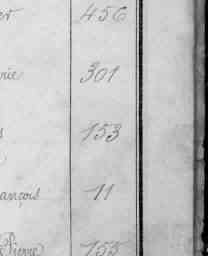 er 456
rie 301
s 153
ançois 11
Pierre 155